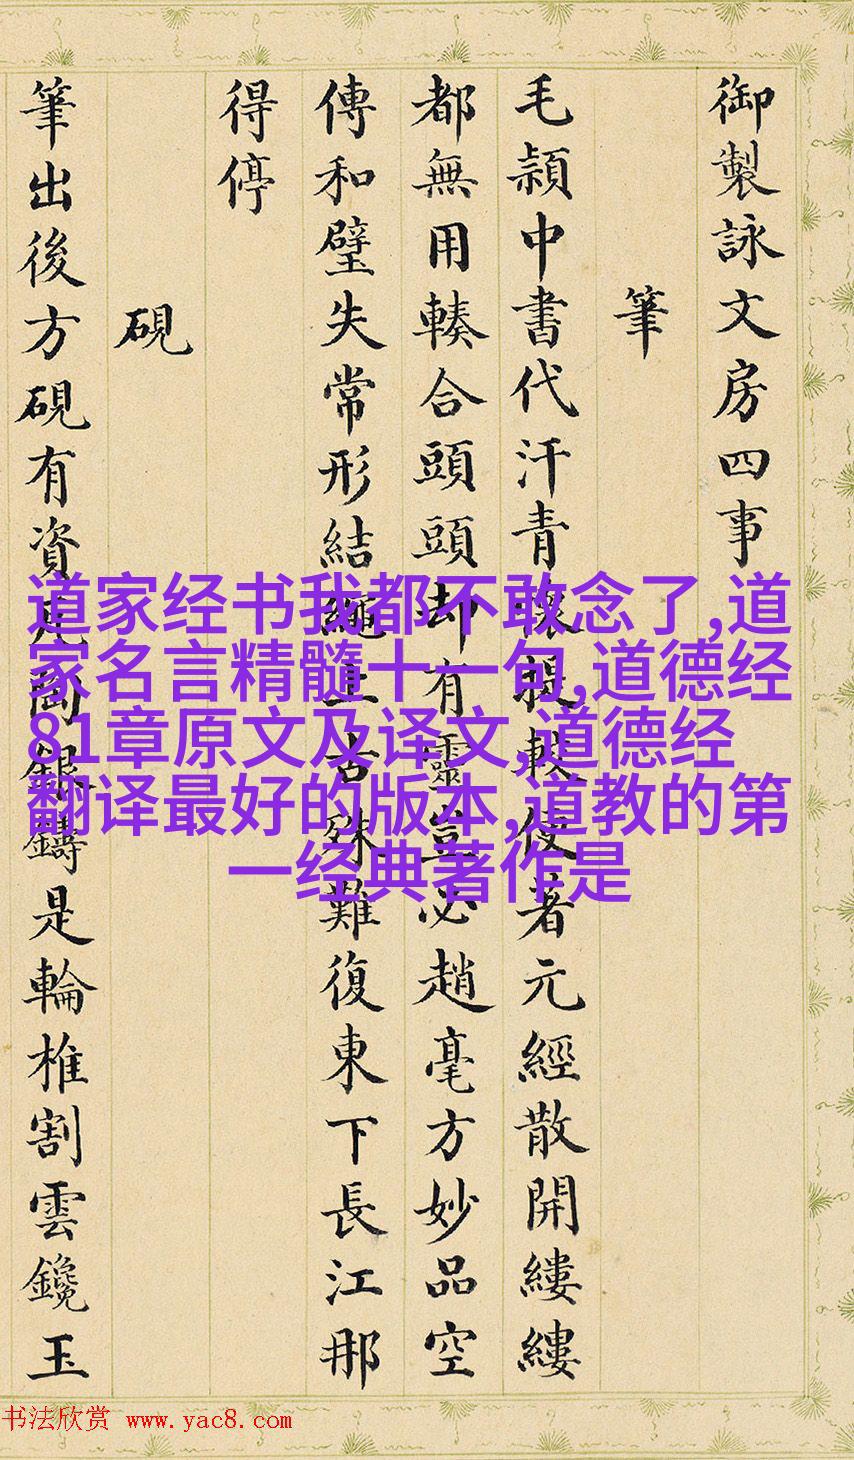 御製詠文房四事
筆
毛穎中書代汗青懷提使著元經散開縷縷
都無用輳合頭頭却有靈豈必趙毫方妙品空
傳和璧失常形結繩上古殊難復東下長江那
得停
硯
筆出後方硯有資陶銀鑄是輪椎割雲鑱玉
道家经书我都不敢念了,道
家名言精髓十一句,道德经
81章原文及译文,道德经
翻译最好的版本,道教的第
一经典著作是
书法欣赏 www.yac8.com